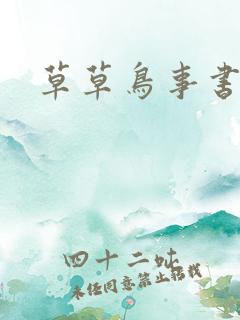 草草鳥事書
四十二蚍
未经同意禁止转载